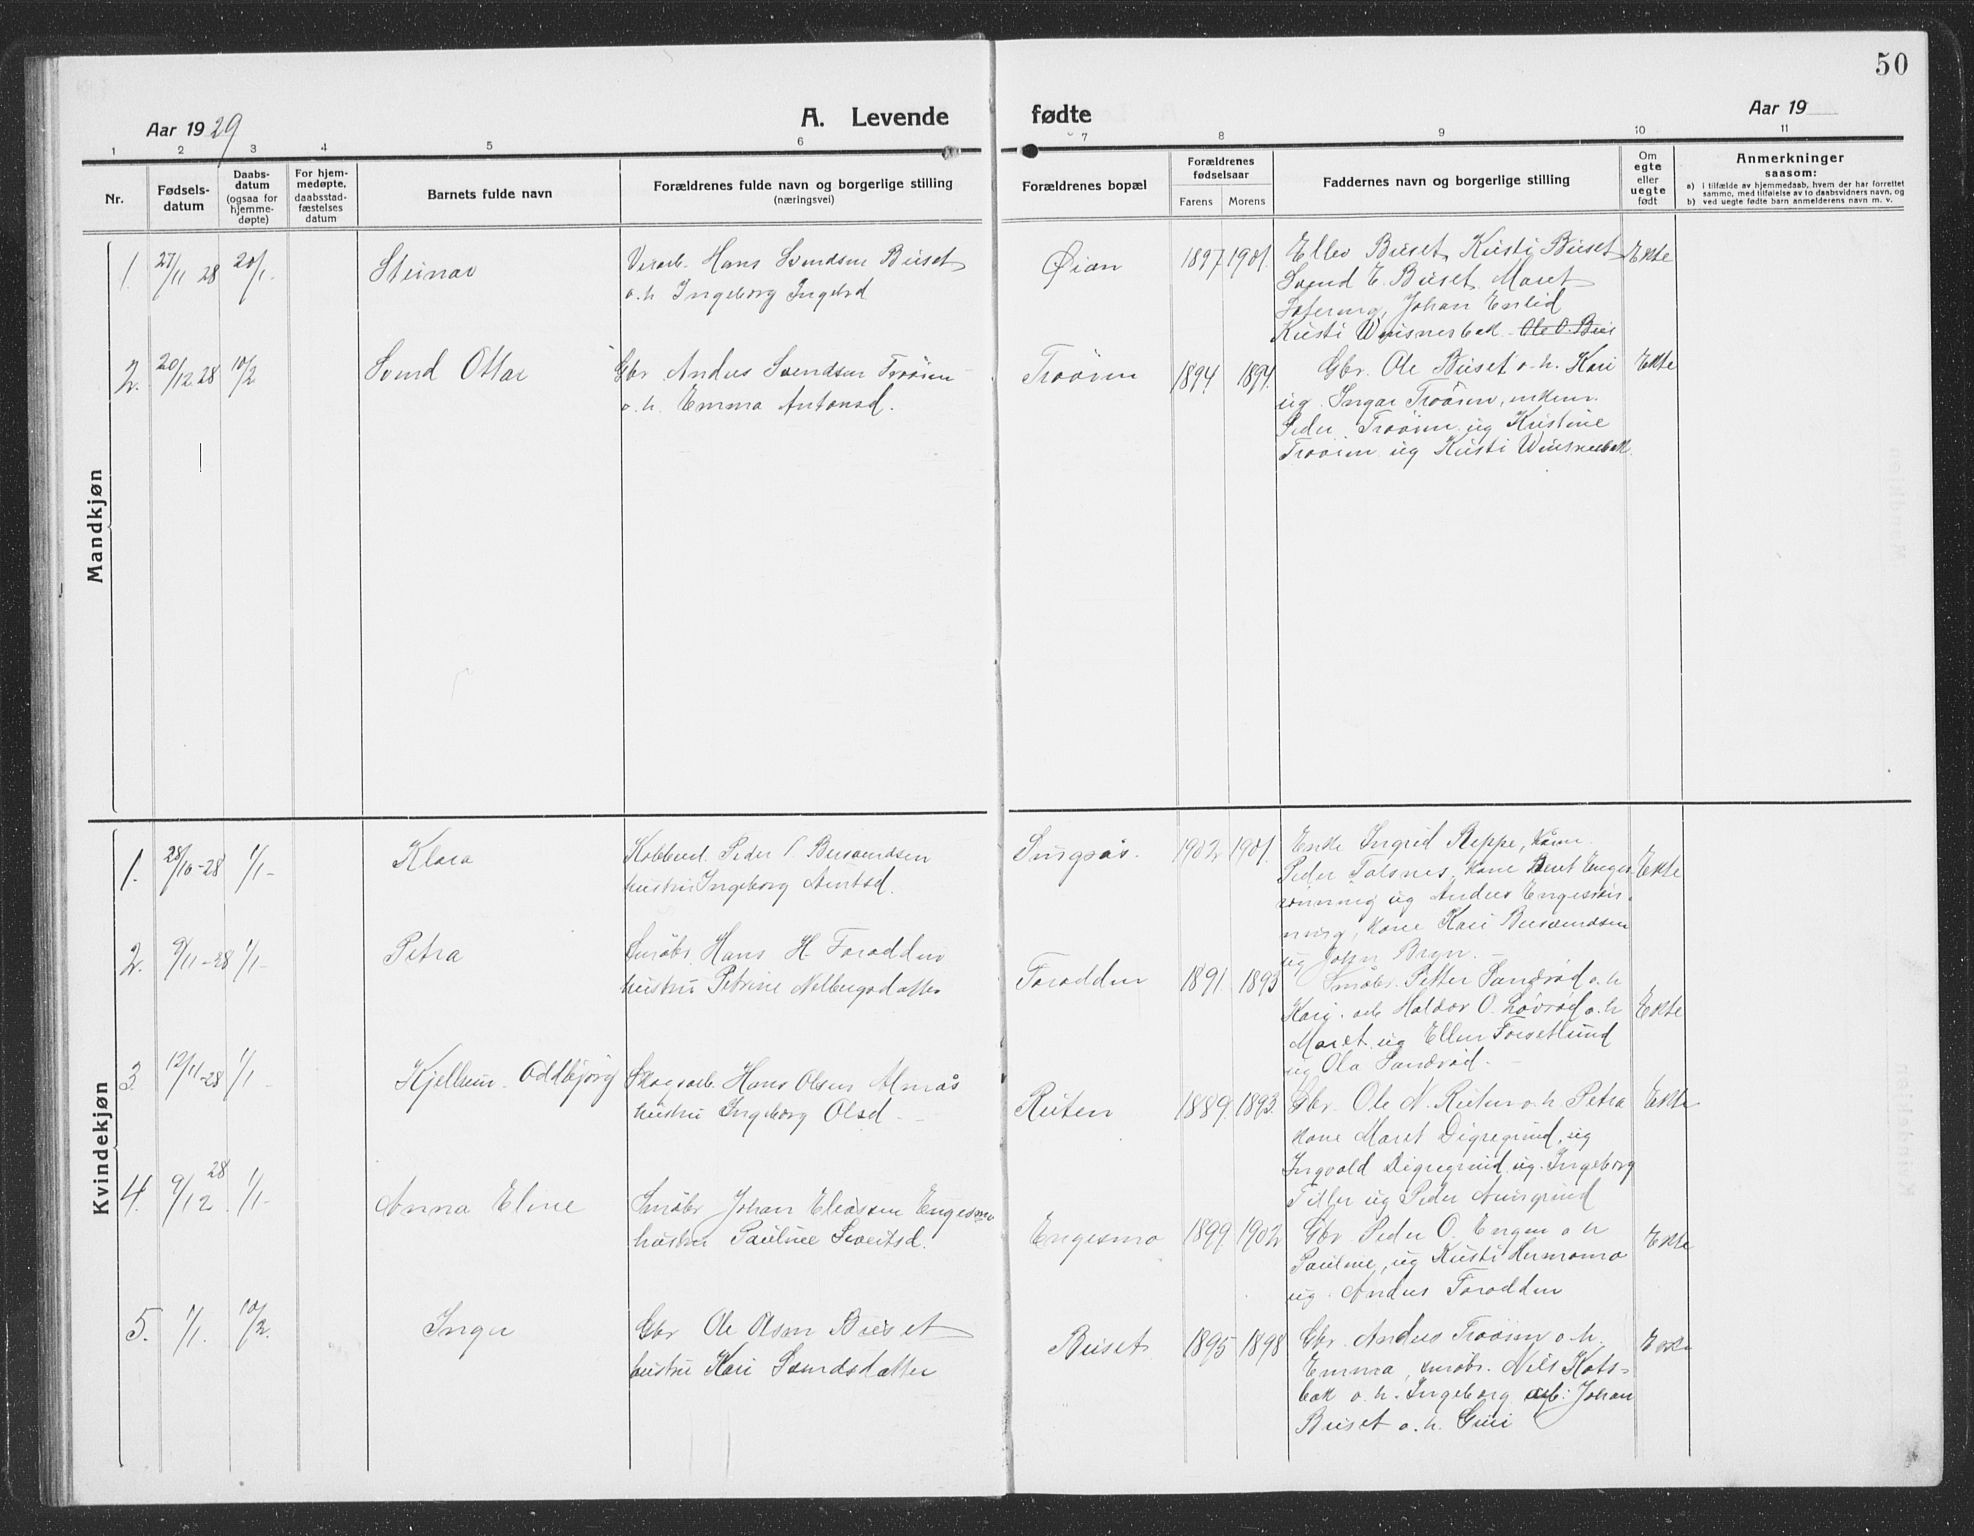 50
Aar 1929
A. Levende
fødte
Aar 19
1 2 3 4 5 6 7 8 9 10 11
Nr.
Fødsels-
datum
Daabs-
datum
(ogsaa for
hjemme-
døpte)
For hjem-
medøpte,
daabsstad-
fæstelses
datum
Barnets fulde navn
Forældrenes fulde navn og borgerlige stilling
(næringsvei)
Forældrenes bopæl
Forældrenes
fødselsaar
Farens Morens
Faddernes navn og borgerlige stilling
Om
egte
eller
uegte
født
Anmerkninger
saasom:
a) i tilfælde av hjemmedaab, hvem der har forrettet
samme, med tilføielse av to daabsvidners navn, og
b) ved uegte fødte barn anmelderens navn m. v.
Mandkjøn
1. 27/11 28 20/1. Steinar
Hans Svendsen Buset
o. h. Ingeborg
Øian 1897 1901.
Ellev Buset, Kirsti Buset
Svend E. Buset. Maret
Johan Enlid
Kirsti Winsnesbak Ole O. Bus
Ekte
2. 20/12 28 10/2 Svend Ottar
Gbr. Anders Svendsen Troøien
o. h. Emma Antonsd.
Troøien 1894 1894.
Gbr. Ole Buset o. h. Kari
ug. Ingar Troøien, enkem.
Peder Troøien ug Kristine
Troøien ug Kirsti Winsnesbak
Ekte
Kvindekjøn
1. 28/10-28 1/1- Klara
Peder
hustru Ingeborg Arntsd.
Singsås. 1902 1901.
Enke Ingrid Reppe, kone
Peder Folsnes, kone Beret Enges-
rønning ug Anders Engesrøn-
ning, kone Kari
ug John Bryn.
Ekte
2. 9/11-28 1/1- Petra
Småbr. Hans H. Forodden
hustru Petrine
Forodden 1891. 1893
Småbr. Petter Sandrød o. h
Kari. arb Haldor O. Løvrød o. h
Maret ug Ellen Forsetlund
ug Ola Sandrød -
Ekte
3. 12/11-28 1/1- Kjellrun Oddbjørg
Skogsarb. Hans Olsen Almås
hustru Ingeborg Olsd -
Ruten 1889. 1893.
Gbr. Ole N. Ruten o. h Petra
kone Maret Digregrind, ug
Ingvald Digregrind ug. Ingeborg
Tiller ug Peder
Ekte
4. 9/12 28 1/1- Anna Eline
Småbr Johan Eliassen Engesmo
hustru Pauline Siveitsd.
Engesmo 1899 1902
Gbr Peder O. Engen o h
Pauline, ug Kirsti Hermomo
ug. Anders Forodden
Ekte
5. 1/1. 10/2. Inger
Gbr Ole Olsen Buset
hustru Kari Svendsdatter
Buset 1895 1898
Gbr. Anders Troøien o. h.
Emma, småbr. Nils Kots-
bak o. h. Ingeborg arb. Johan
Buset o. h. Guri
Ekte